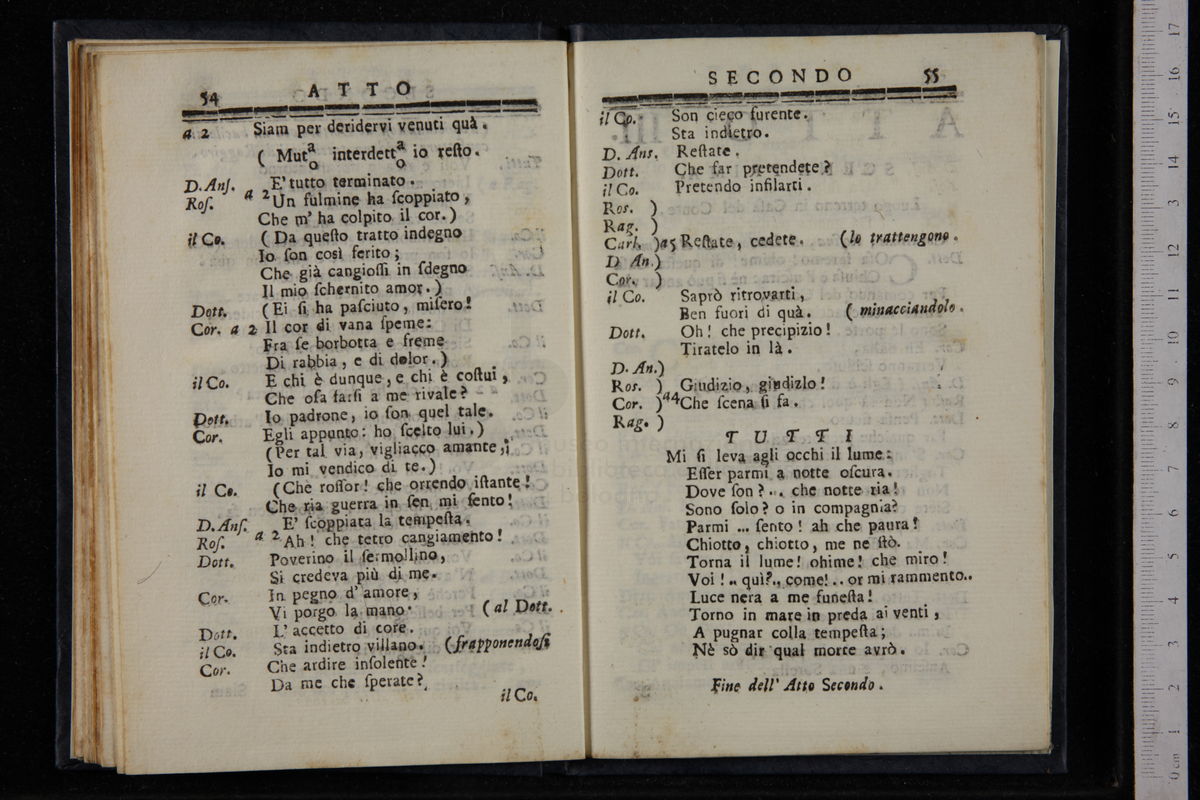 54 ATTO
a 2 Siam per deridervi venuti quà.
( Mutᵃₒ interdettᵃₒ io reſto.
D. Anſ. E' tutto terminato.
Roſ. a 2 Un fulmine ha ſcoppiato,
Che m' ha colpito il cor. )
il Co. ( Da queſto tratto indegno
Io ſon così ferito;
Che già cangioſſi in ſdegno
Il mio ſchernito amor. )
Dott. ( Ei ſi ha paſciuto, miſero!
Cor. a 2 Il cor di vana ſpeme:
Fra ſe borbotta e freme
Di rabbia, e di dolor. )
il Co. E chi è dunque, e chi è coſtui,
Che oſa farſi a me rivale?
Dott. Io padrone, io ſon quel tale.
Cor. Egli appunto: ho ſcelto lui. )
(Per tal via, vigliacco amante,
Io mi vendico di te. )
il Co. (Che roſſor! che orrendo iſtante!
Che ria guerra in ſen mi ſento!
D. Anſ. E' ſcoppiata la tempeſta.
Roſ. a 2 Ah! che tetro cangiamento!
Dott. Poverino il ſermollino,
Si credeva più di me.
Cor. In pegno d' amore,
Vi porgo la mano. ( al Dott.
Dott. L' accetto di core.
il Co. Sta indietro villano. (frapponendoſi
Cor. Che ardire inſolente!
Da me che ſperate?
il Co.
SECONDO 55
il Co. Son cieco furente.
Sta indietro.
D. Ans. Reſtate.
Dott. Che far pretendete?
il Co. Pretendo infilarti.
Ros. )
Rag. )
Carl. )a5 Reſtate, cedete. (lo trattengono.
D. An.)
Cor. )
il Co. Saprò ritrovarti,
Ben fuori di quà. ( minacciandolo.
Dott. Oh! che precipizio!
Tiratelo in là.
D. An.)
Ros. ) Giudizio, giudizIo!
Cor. )a4 Che ſcena ſi fa.
Rag. )
TUTTI
Mi ſi leva agli occhi il lume:
Eſſer parmi a notte oſcura.
Dove ſon? ... che notte ria!
Sono ſolo? o in compagnia?
Parmi ... ſento! ah che paura!
Chiotto, chiotto, me ne ſtò.
Torna il lume! ohime! che miro!
Voi! .. quì?.. come!.. or mi rammento..
Luce nera a me funeſta!
Torno in mare in preda ai venti,
A pugnar colla tempeſta;
Nè sò dir qual morte avrò.
Fine dell' Atto Secondo.